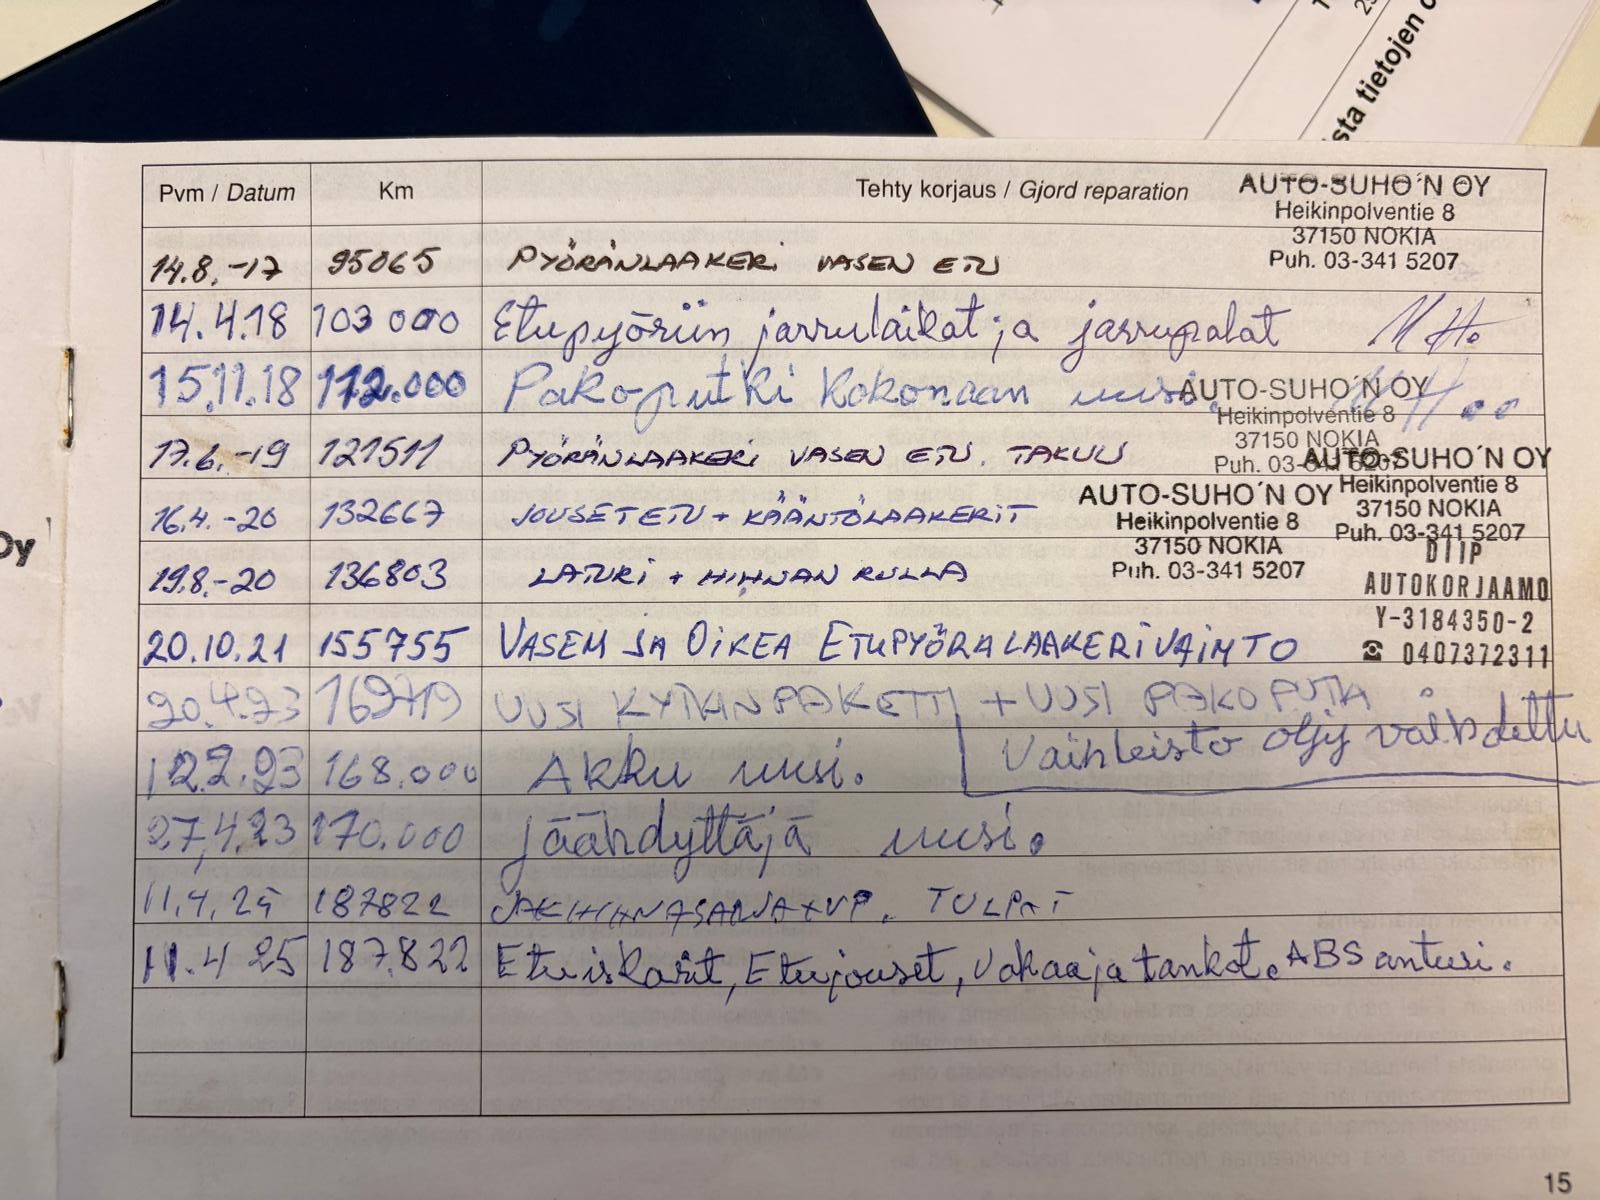 sta tietojen
Pvm / Datum Km Tehty korjaus / Gjord reparation
AUTO-SUHO´N OY
Heikinpolventie 8
37150 NOKIA
Puh. 03-341 5207
14.8.-17 95065 PYÖRÄNLAAKERI VASEN ETU
14.4.18 103 000 Etupyöriin jarrulaikat ja jarrupalat
15.11.18 112.000 Pakoputki kokonaan uusi.
AUTO-SUHO´N OY
Heikinpolventie 8
37150 NOKIA
Puh. 03-341 5207
17.6.-19 121511 PYÖRÄNLAAKERI VASEN ETU. TAKUU
AUTO-SUHO´N OY
Heikinpolventie 8
37150 NOKIA
Puh. 03-341 5207
16.4.-20 132667 JOUSET ETU + KÄÄNTÖLAAKERIT
AUTO-SUHO´N OY
Heikinpolventie 8
37150 NOKIA
Puh. 03-341 5207
19.8.-20 136803 LATURI + HIHNAN RULLA
DIIP
AUTOKORJAAMO
Y-3184350-2
☎ 0407372311
20.10.21 155755 VASEM JA OIKEA ETUPYÖRALAAKERIVAIHTO
20.4.23 169719 UUSI KYTKINPAKETTI + UUSI PAKOPUTA
Vaihteisto öljy vaihdettu
168.000 Akku uusi.
27.4.23 170.000 Jäähdyttäjä uusi.
187822 TULPAT
11.4 25 187.822 Etuiskarit, Etujouset, Vakaaja tankot. ABS anturi.
Oy
15